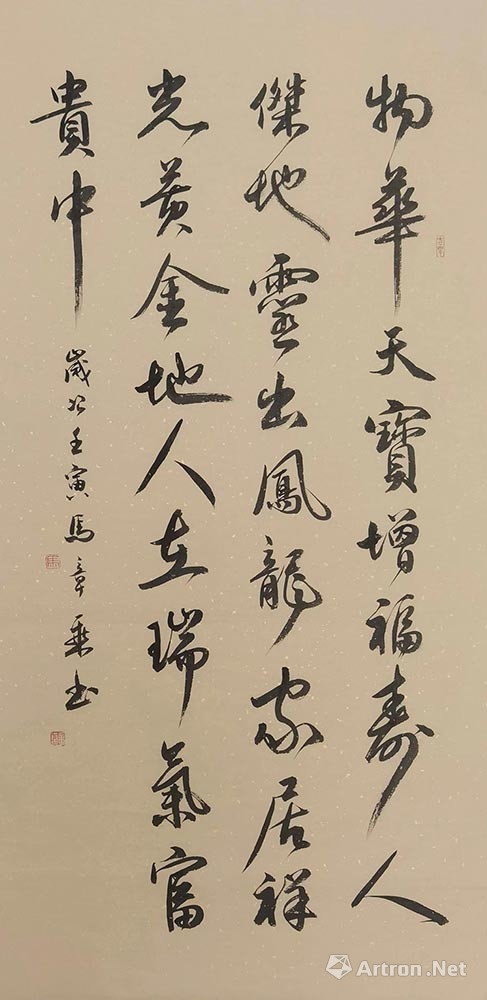 物華天寶增福壽人
傑地靈出鳳龍家居祥
光黃金地人在瑞氣富
貴中
歲次壬寅馬章乘書
Artron.Net